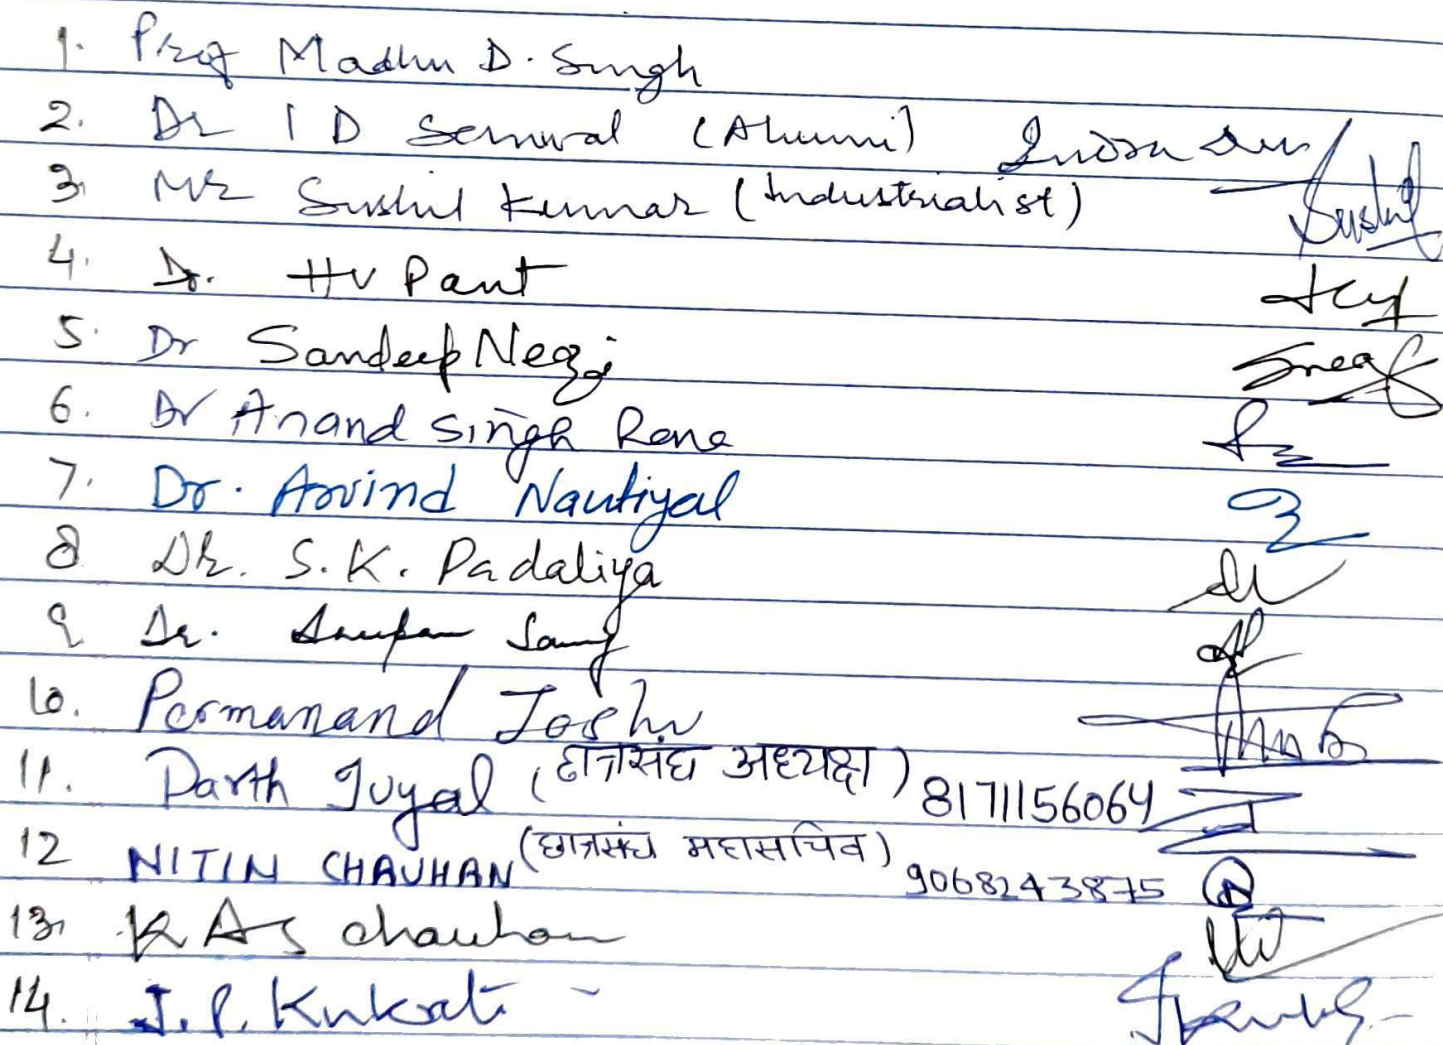 1. Prof Madhu D. Singh
2. Dr I D Semwal (Alumni)
3. Mr Sushil Kumar (Industrialist) Sushil
4. Dr. HV Pant
5. Dr Sandeep Negi Snegi
6. Dr Anand Singh Rana
7. Dr. Arvind Nautiyal
8 Dr. S.K. Padaliya
9 Dr. Anupam
10. Permanand Joshi
11. Parth Juyal (छात्रसंघ अध्यक्ष) 8171156064
12 NITIN CHAUHAN (छात्रसंघ महासचिव) 9068243875
13. K A S Chauhan
14. J. P. Kukreti -